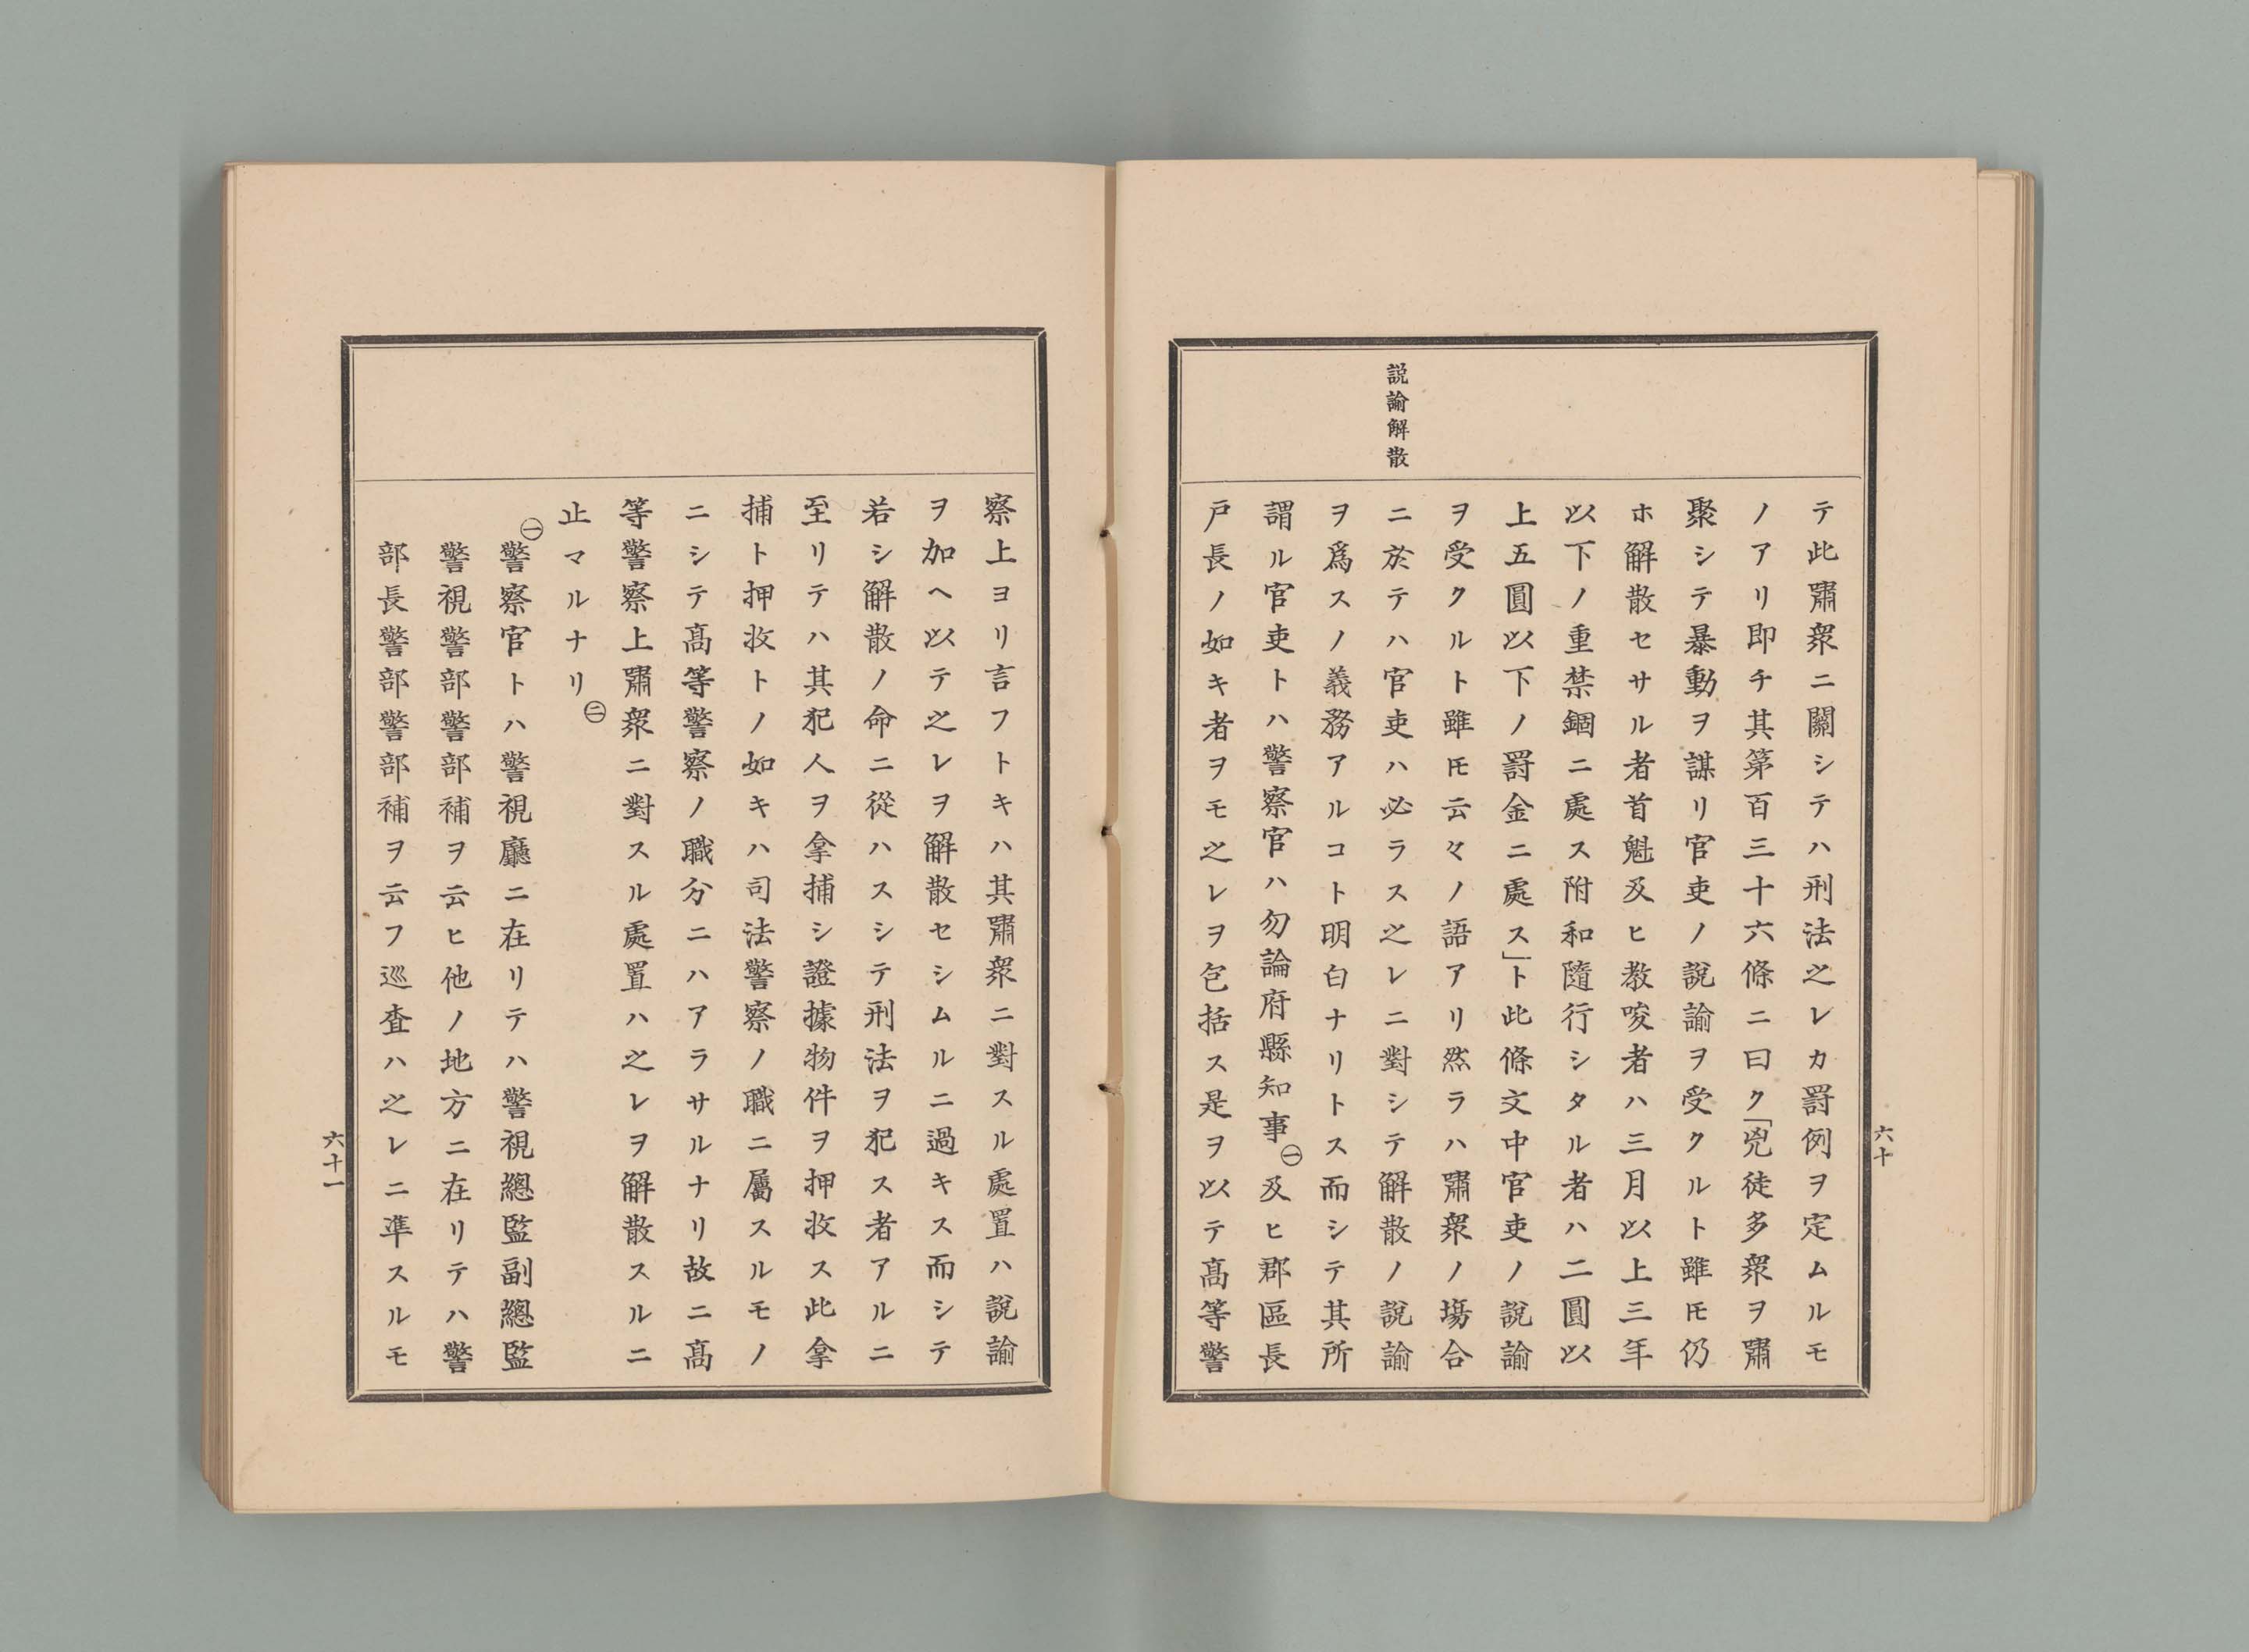 説諭解散
テ此嘯衆ニ關シテハ刑法之レカ罰例ヲ定ムルモ
ノアリ即チ其第百三十六條ニ曰ク「兇徒多衆ヲ嘯
聚シテ暴動ヲ謀リ官吏ノ說諭ヲ受クルト雖𪜈仍
ホ解散セサル者首魁及ヒ敎唆者ハ三月以上三年
以下ノ重禁錮ニ處ス附和隨行シタル者ハ二圓以
上五圓以下ノ罰金ニ處ス」ト此條文中官吏ノ說諭
ヲ受クルト雖𪜈云々ノ語アリ然ラハ嘯衆ノ塲合
ニ於テハ官吏ハ必ラス之レニ對シテ解散ノ說諭
ヲ爲スノ義務アルコト明白ナリトス而シテ其所
謂ル官吏トハ警察官ハ勿論府縣知事㊀及ヒ郡區長
戶長ノ如キ者ヲモ之レヲ包括ス是ヲ以テ高等警
六十
察上ヨリ言フトキハ其嘯衆ニ對スル處置ハ說諭
ヲ加ヘ以テ之レヲ解散セシムルニ過キス而シテ
若シ解散ノ命ニ從ハスシテ刑法ヲ犯ス者アルニ
至リテハ其犯人ヲ拿捕シ證據物件ヲ押收ス此拿
捕ト押收トノ如キハ司法警察ノ職ニ屬スルモノ
ニシテ高等警察ノ職分ニハアラサルナリ故ニ高
等警察上嘯衆ニ對スル處置ハ之レヲ解散スルニ
止マルナリ㊁
㊀警察官トハ警視廳ニ在リテハ警視總監副總監
警視警部警部補ヲ云ヒ他ノ地方ニ在リテハ警
部長警部警部補ヲ云フ巡査ハ之レニ準スルモ
六十一